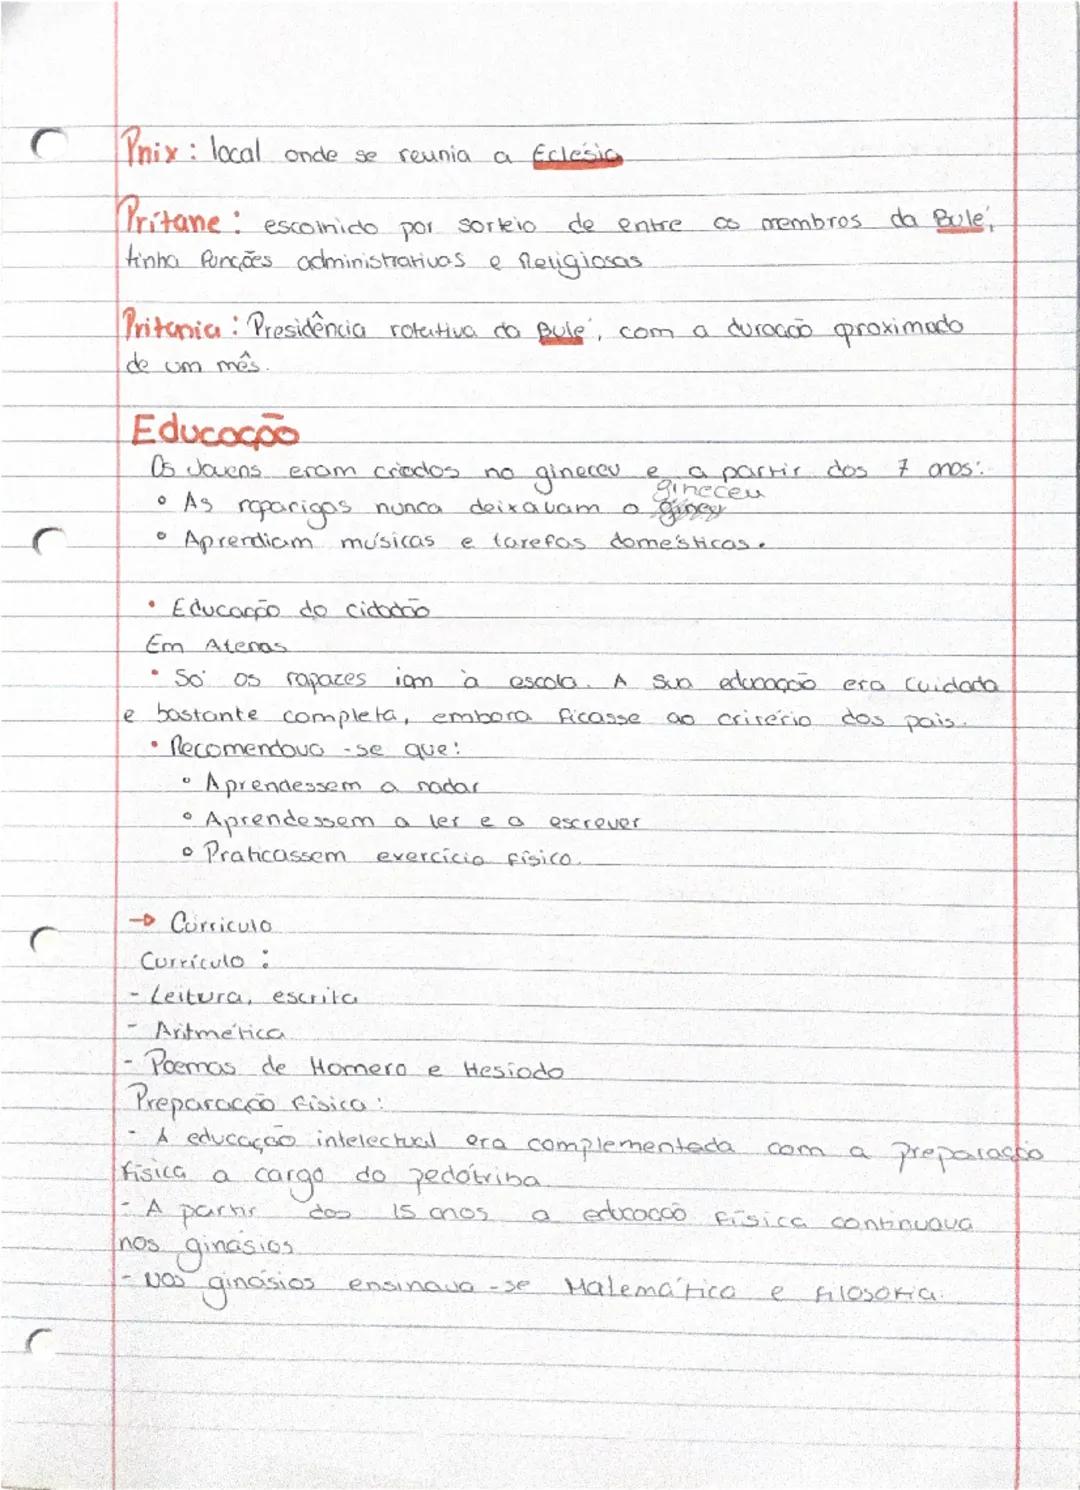 Pnix: local onde se reunia a Eclésia
Prítane: escolhido por sorteio de entre os membros da Bulé,
tinha funções administrativas e Religiosas
Pritania: Presidência rotativa da Bulé, com a duração aproximada
de um mês.
Educação
Os Jovens eram criados no gineceu e a partir dos 7 anos:
gineceu
• As raparigas nunca deixavam o
• Aprendiam músicas e tarefas domésticas.
• Educação do cidadão
Em Atenas
• Só os rapazes iam à escola. A sua educação era cuidada
e bastante completa, embora ficasse ao critério dos pais.
• Recomendava-se que:
• Aprendessem a nadar
• Aprendessem a ler e a escrever
• Praticassem exercício físico.
→ Currículo
Currículo:
- Leitura, escrita
- Aritmética
- Poemas de Homero e Hesíodo
Preparação física:
- A educação intelectual era complementada com a preparação
física a cargo do pedótriba.
- A partir dos 15 anos a educação física continuava
nos ginásios
- Nos ginásios ensinava-se Matemática e filosofia.